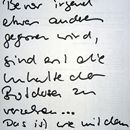 Bevor irgend
etwas anderes
gegossen wird,
sind erst alle
Inhalte der
zu
verzehren...
Das ist wie mit dem